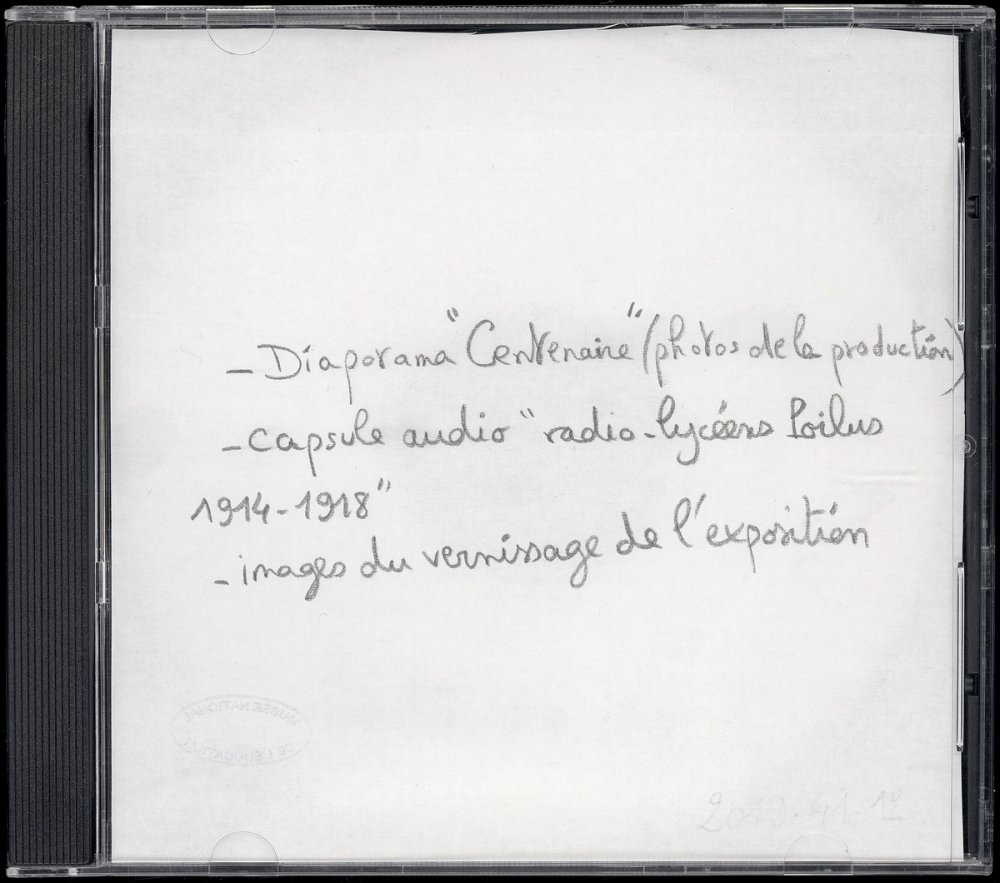 - Diaporama "Centenaire" (photos de la production)
- capsule audio "radio-lycéens Poilus
1914-1918"
- images du vernissage de l'exposition
MUSÉE NATIONAL
DE L'ÉDUCATION